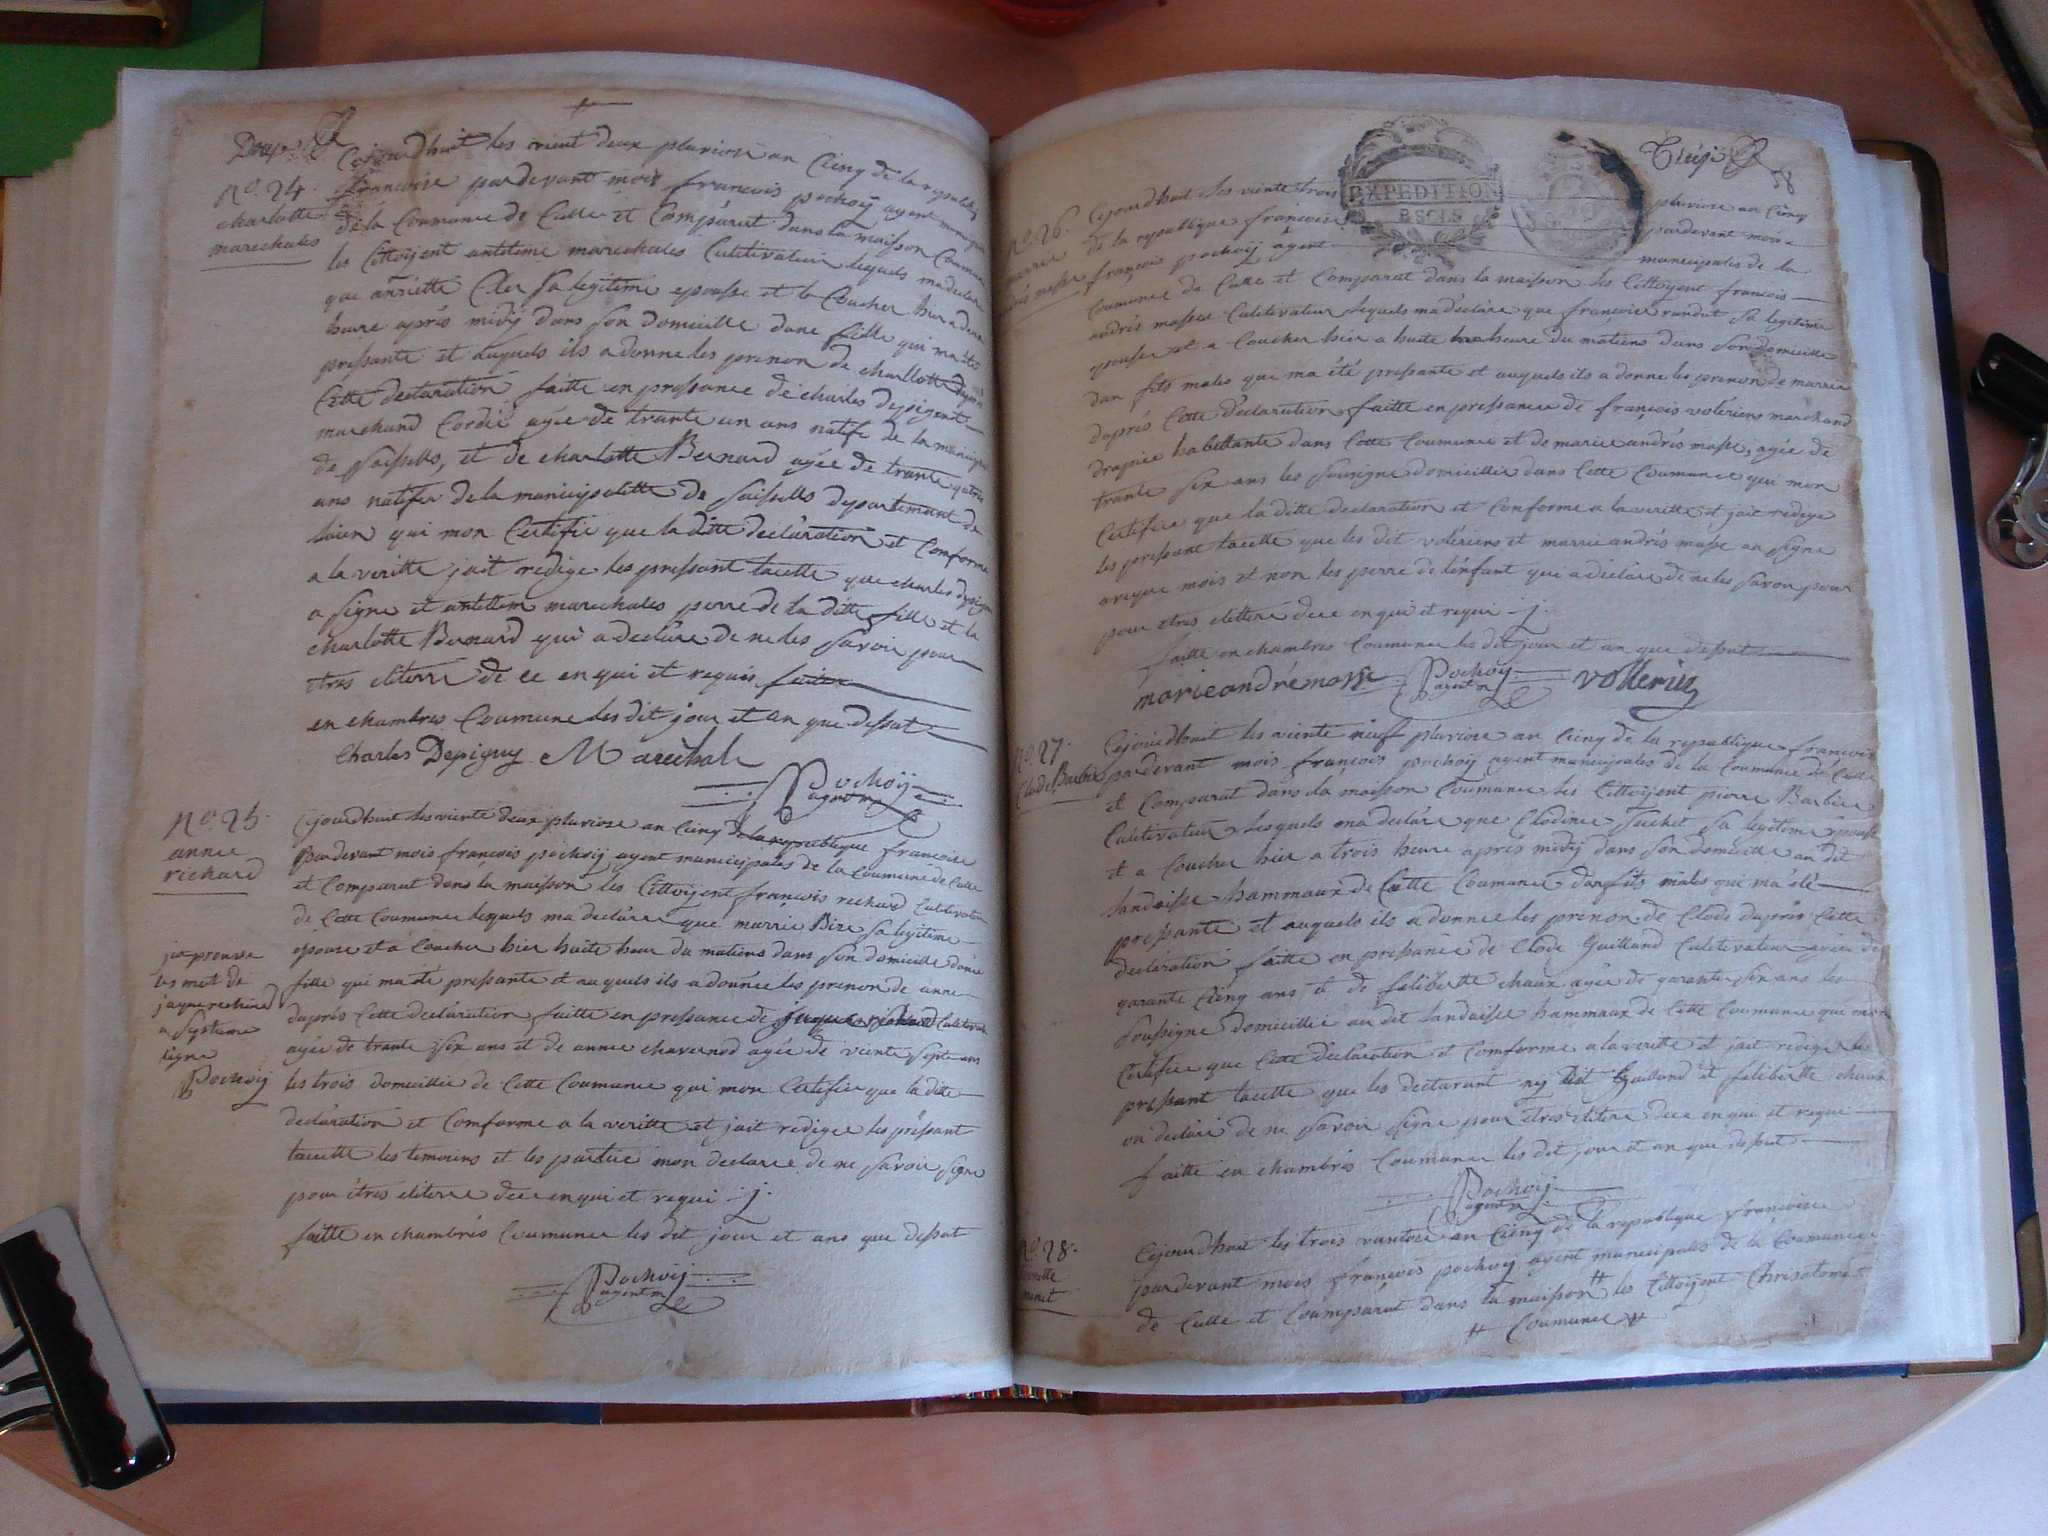 No. 24.
charlotte
marechales
Cejourdhuit les vient deux pluviose an Cinq de la republique
francoise pardevant mois francois pochoij agent municipal
de la Coumune de Culle et Comparut dans la maisson Coumune
les Cittoijent antelme marechales Cultivateur lequels ma declare
que anriette Cler sa legitime epousse et la Coucher hier a deux
heure après midij dans son domicille dune fille qui ma été
pressante et auquels ils a donne les prenon de charllotte daprès
Cette declaration faitte en pressance de charles depigent
marchand Cordié agée de trante un ans natife de la municipa
de saissells, et de charlotte Bernard agée de trante quatre
ans natifer de la municipalitte de saissells departemant de
lain qui mon Certifie que la ditte declaration et Comforme
a la veritte jait redige les pressant lacette que charles depigni
a signe et antellem marechales perre de la ditte fille et la
charlotte Bernard qui a declare de ne les savoir pour
etres eliterre de ce enqui et requis faitte
en chambres Coumune les dit jour et an que dessut
Charles Depigny Maréchal
Pochoij
agent m
No. 25.
anne
richard
Cejourdhuit les viente deux pluviose an Cinq de la republique francoise
pardevant mois francois pochoij agent municipales de la Coumune de Culle
et Comparut dans la maisson les Cittoijent francois rechard Cultivateur
de Cette Coumune lequels ma declare que marrie Bire sa legitime
epouse et a Coucher hier huite heur du matiens dans son domicille dune
fille qui ma été pressante et auquels ils a donnée les prenon de anne
daprès Cette declaration faitte en pressance de jaques richard Cultivateur
agée de trante six ans et de anne chavernod agée de viente septe ans
les trois domicillie de Cette Coumune qui mon Certifie que la ditte
declaration et Comforme a la veritte et jait redige les pressant
lacette les temoiens et les partie mon declare de ne savoir signe
pour êtres eliterre dece enqui et requi j.
faitte en chambrés Coumune les dit jour et ans que dessut
Pochoij
agent m
jaques rechard
Pochoij
58
No. 26.
EXPEDITION
Cejourdhuit les viente trois pluviose an Cinq
de la republique francoise pardevant mois
françois pochoij agent municipales de la
Coumune de Culle et Comparut dans la maisson les Cittoijent francois
andrés masse Cultivateur lequels ma declare que francoise rundut sa legitime
epouser et a Coucher hier a huite heure du matiens dans son domicille
dun fits males que ma été pressante et auquels ils a donne les prenon de marrie
daprés Cette declaration faitte en pressance de françois voleriens marchand
drapiée habittante dans Cette Coumune et de marie andrés masse, agée de
trante six ans les sousigne domicillie dans Cette Coumune qui mon
Certifie que la ditte declaration et Conforme a la veritte et jait redige
les pressant lacette que les dit voleriens et marrie andrés masse an signe
aveque mois et non les perre de lenfant qui a declare de ne les savoir pour
pour etres elitterre dece enqui et requi j.
faitte en chambres Coumune les dit jour et an que dessut
marie andré masse Pochoij agent m
No. 27.
Clode Barbier
Cejourdhuit les viente neuf pluviose an Cinq de la republique françoise
pardevant mois françois pochoij agent municipales de la Coumune de Culle
et Comparut dans la maisson Coumune les Cittoijent pierre Barbier
Cultivateur lesquels ma declare que Clodine suchet sa legitime epouse
et a Coucher hier a trois heure après midij dans son domicille au dit
landaisse hammaux de Cette Coumune dun fits males qui ma été
pressante et auquels ils a donnee les prenon de Clode daprès Cette
declaration faitte en pressance de Clode Guilland Cultivateur agée de
garante Cienq ans et de felibertte chaux agée de garante six ans les
soussigne domicillie au dit landaisse hammaux de Cette Coumune qui mon
Certifie que Cette declaration et Comforme a la veritte et jait redige les
pressant lacette que les declarant nij dit Guilland et felibertte chaux
on declare de ne savoir signe pour etres eliterre dece enqui et requi
faitte en chambrés Coumune les dit jour et an que dessut
Pochoij
agent m
No. 28.
Cejourdhuit les trois vantose an Cienq de la republique francoise
pardevant mois francois pochoij agent municipales de la Coumune
de Culle et Coumparut dans la maisson # les Cittoijent Chrisotome
# Coumune #